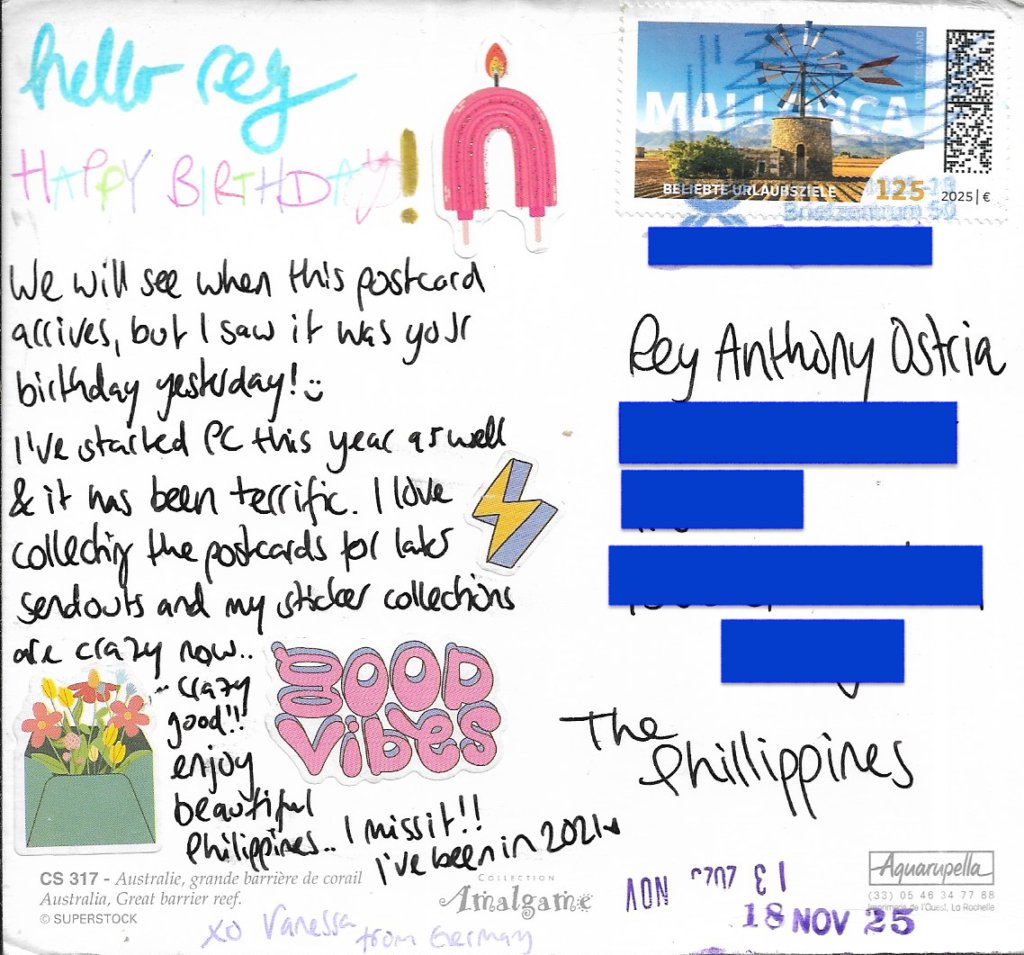 hello rey
HAPPY BIRTHDAY!
We will see when this postcard
arrives, but I saw it was your
birthday yesterday!
I've started PC this year as well
& it has been terrific. I love
collecting the postcards for later
sendouts and my sticker collections
are crazy now..
.. crazy
good!!
enjoy
beautiful
Philippines.. I miss it!!
I've been in 2021
GOOD
VIBES
xo Vanessa
from Germany
CS 317 - Australie, grande barrière de corail
Australia, Great barrier reef.
© SUPERSTOCK
COLLECTION
Amalgame
MALLORCA
BELIEBTE URLAUBSZIELE
125
2025 | €
Briefzentrum 50
Rey Anthony Ostria
The
Phillippines
Aquarupella
(33) 05 46 34 77 88
Imprimerie de l'Ouest, La Rochelle
18 NOV 25